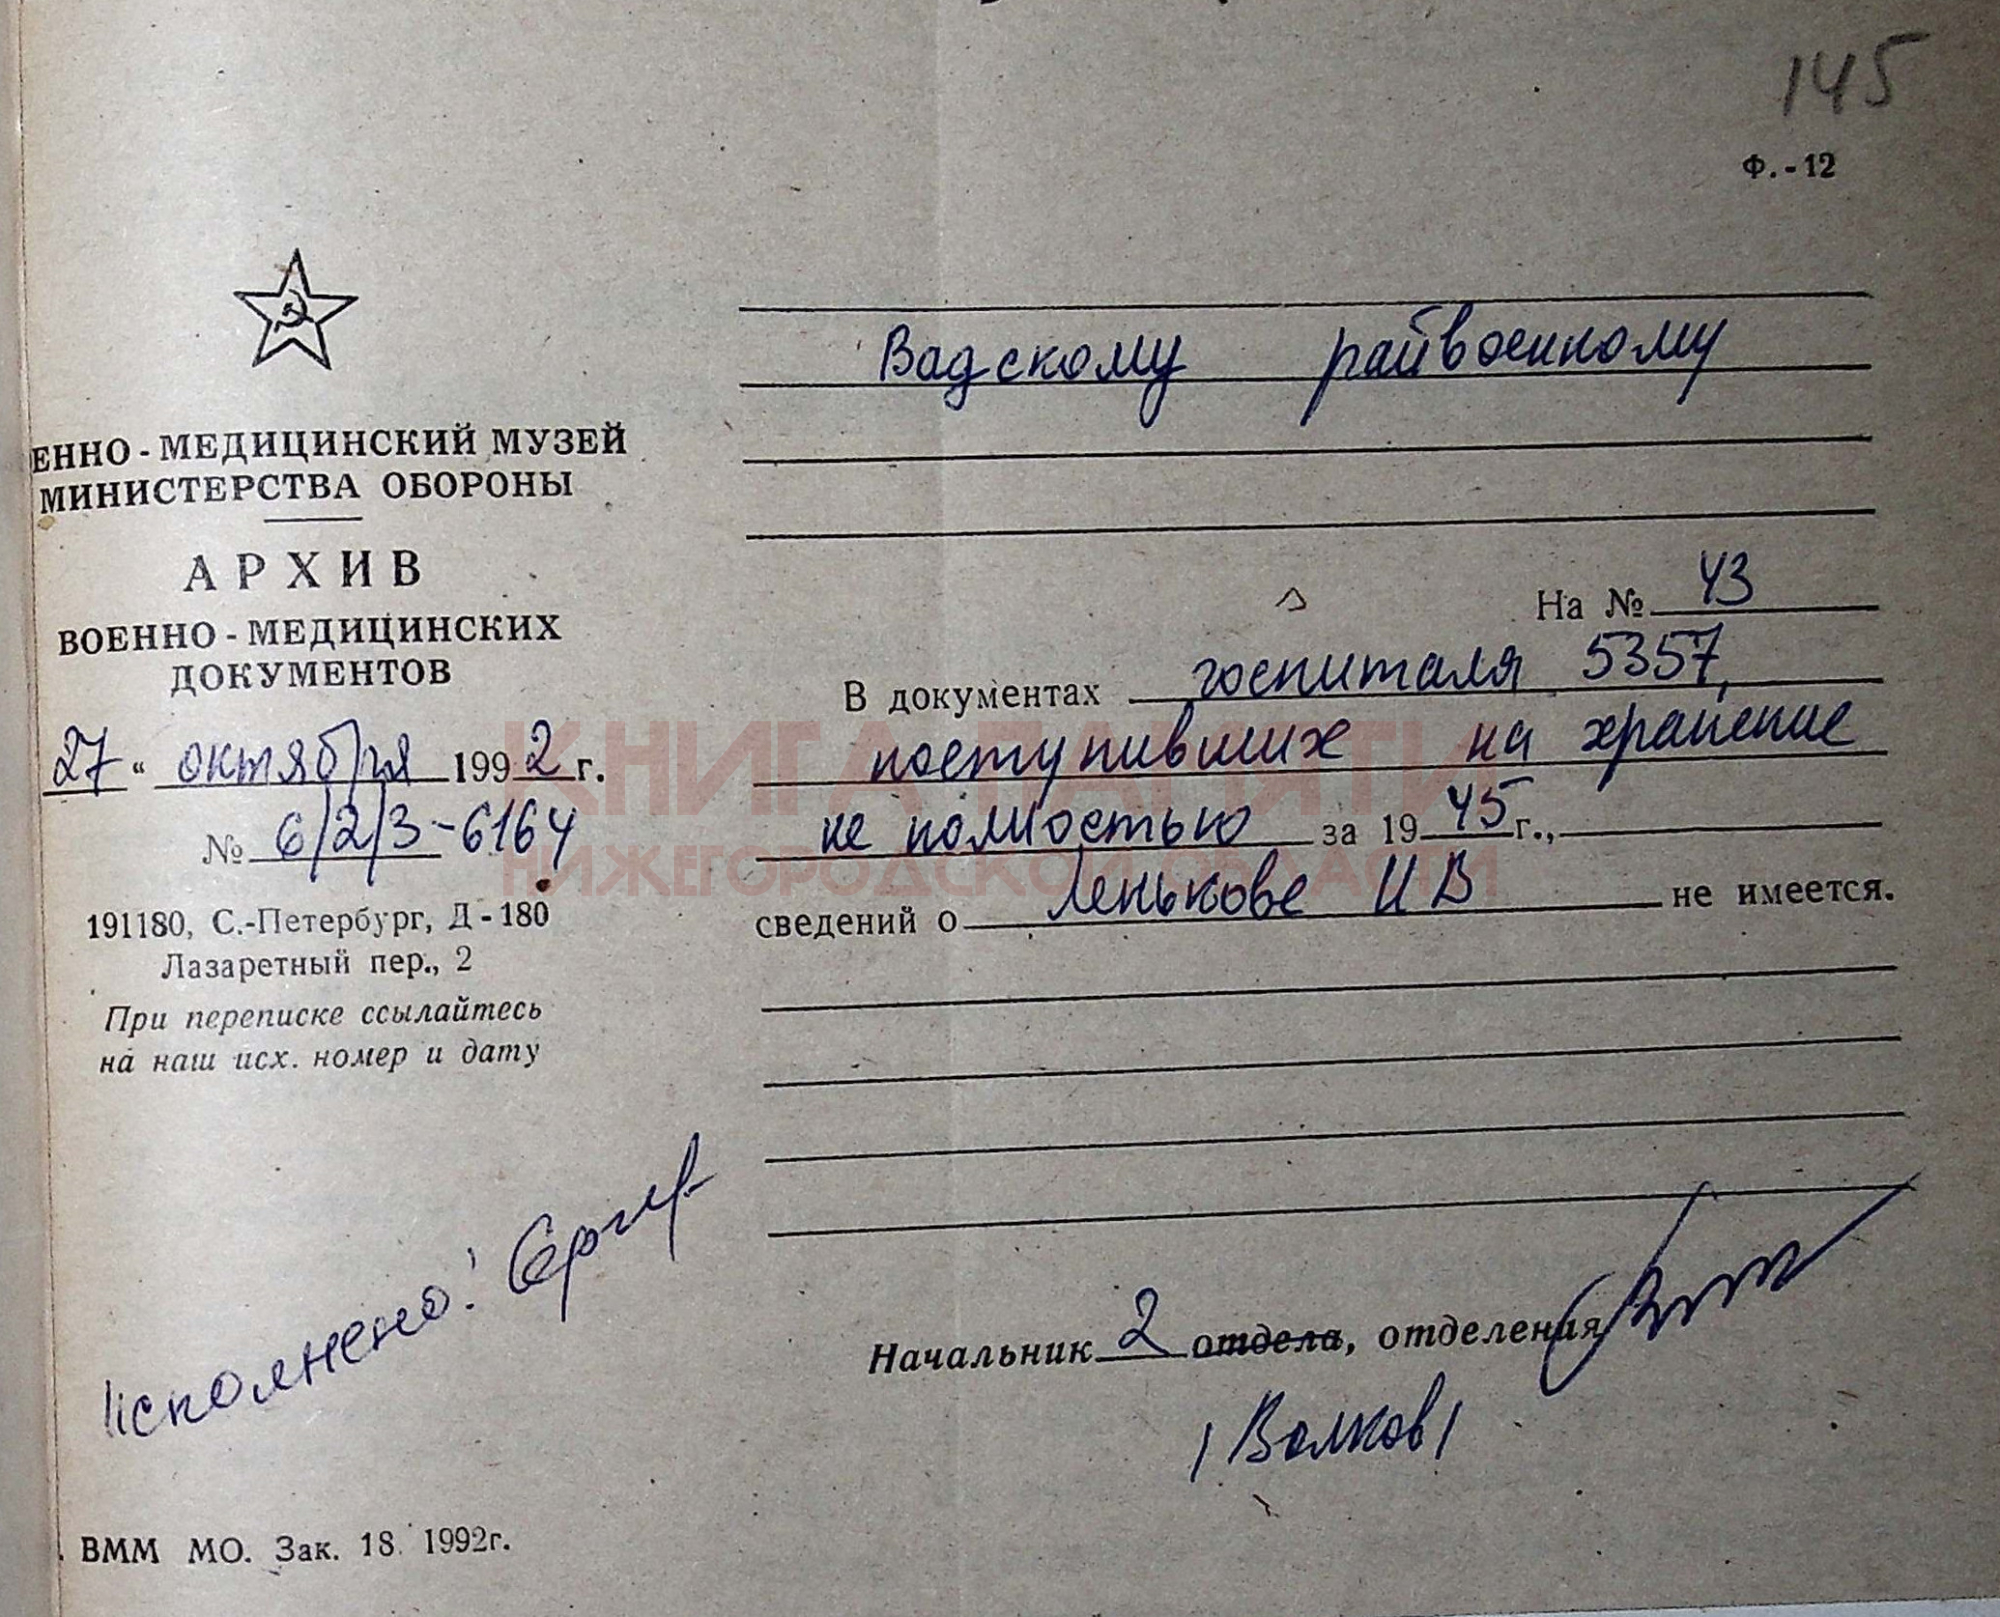 145
Ф.-12
Вадскому райвоенному
ЕННО-МЕДИЦИНСКИЙ МУЗЕЙ
МИНИСТЕРСТВА ОБОРОНЫ
АРХИВ
ВОЕННО-МЕДИЦИНСКИХ
ДОКУМЕНТОВ
27 " октября 1992 г.
№ 6/2/3-6164
191180, С.-Петербург, Д-180
Лазаретный пер., 2
При переписке ссылайтесь
на наш исх. номер и дату
На № 43
В документах госпиталя 5357,
поступивших на хранение
не полностью за 1945 г.,
сведений о Ленькове И В не имеется.
КНИГА ПАМЯТИ
НИЖЕГОРОДСКОЙ ОБЛАСТИ
Исполнено!
Начальник 2 отдела, отделения
/Волков/
ВММ МО. Зак. 18. 1992г.